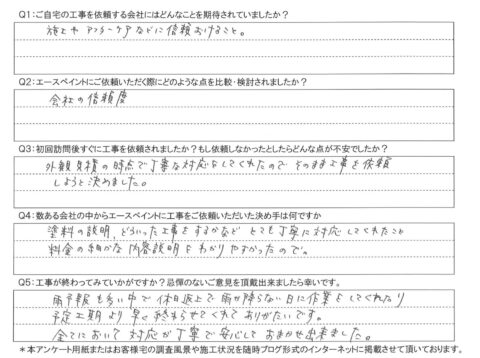 Q1：ご自宅の工事を依頼する会社にはどんなことを期待されていましたか？
施工やアフターケアなどに信頼おけること。
Q2：エースペイントにご依頼いただく際にどのような点を比較・検討されましたか？
会社の信頼度
Q3：初回訪問後すぐに工事を依頼されましたか？もし依頼しなかったとしたらどんな点が不安でしたか？
外観見積の時点で丁寧な対応をしてくれたので そのまま工事を依頼
しようと決めました。
Q4：数ある会社の中からエースペイントに工事をご依頼いただいた決め手は何ですか
塗料の説明、どういった工事をするかなど とても丁寧に対応してくれたこと
料金の細かな内容説明もわかりやすかったので。
Q5：工事が終わってみていかがですか？忌憚のないご意見を頂戴出来ましたら幸いです。
雨予報も多い中で休日返上で雨が降らない日に作業をしてくれたり
予定工期より早く終わらせてくれてありがたいです。
全てにおいて対応が丁寧で安心しておまかせ出来ました。
＊本アンケート用紙またはお客様宅の調査風景や施工状況を随時ブログ形式のインターネットに掲載させて頂いております。